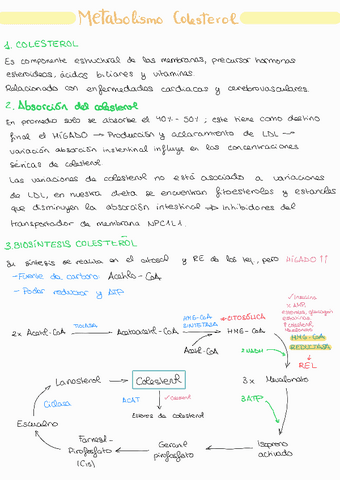 Metabolismo Colesterol
1. COLESTEROL
Es componente estructural de las membranas, precursor hormonas
esteroideas, ácidos biliares y vitaminas.
Relacionado con enfermedades cardiacas y cerebrovasculares.
2. Absorción del colesterol
En promedio solo se absorbe el 40% - 50%, este tiene como destino
final el HÍGADO → Producción y aclaramiento de LDL →
variación absorción intestinal influye en las concentraciones
séricas de colesterol.
Las variaciones de colesterol no está asociado a variaciones
de LDL, en nuestra dieta se encuentran fitoesteroles y estanoles
que disminuyen la absorción intestinal → Inhibidores del
transportador de membrana NPC1L1.
3. BIOSÍNTESIS COLESTEROL
Su síntesis se realiza en el citosol y RE de las , pero HÍGADO !!
- Fuente de carbono: Acetil - CoA
- Poder reductor y ATP
2x Acetil-CoA
TIOLASA
Acetoacetil-CoA
HMG-CoA
SINTETASA
CITOSÓLICA
HMG-CoA
Acetil-CoA
✓ Insulina
x AMP
esteroles, glucagón
↑ colesterol
HMG-CoA
REDUCTASA
REL
2 NADPH
3x Mevalonato
3 ATP
Isopreno
activado
Geranil
pirofosfato
Farnesil-
Pirofosfato
(C15)
Escualeno
Ciclasa
Lanosterol
Colesterol
ACAT
✓ Colesterol
Ésteres de colesterol